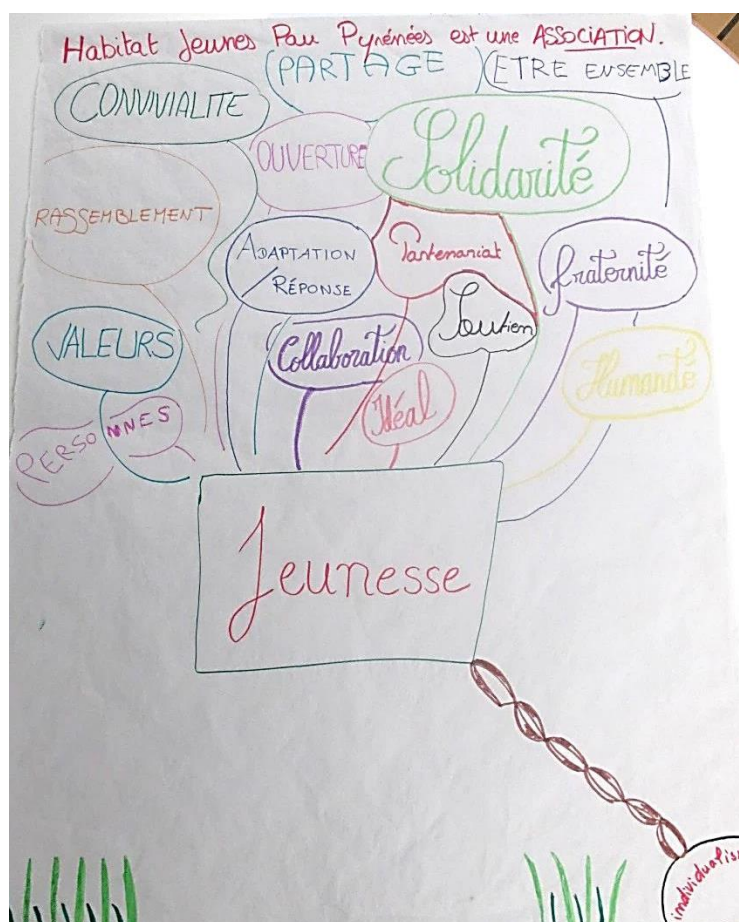 Habitat Jeunes Pau Pyrénées est une ASSOCIATION.
PARTAGE
ETRE ENSEMBLE
CONVIVIALITE
OUVERTURE
Solidarité
RASSEMBLEMENT
ADAPTATION
/ RÉPONSE
Partenariat
fraternité
VALEURS
Collaboration
Soutien
Humanité
Idéal
PERSONNES
Jeunesse